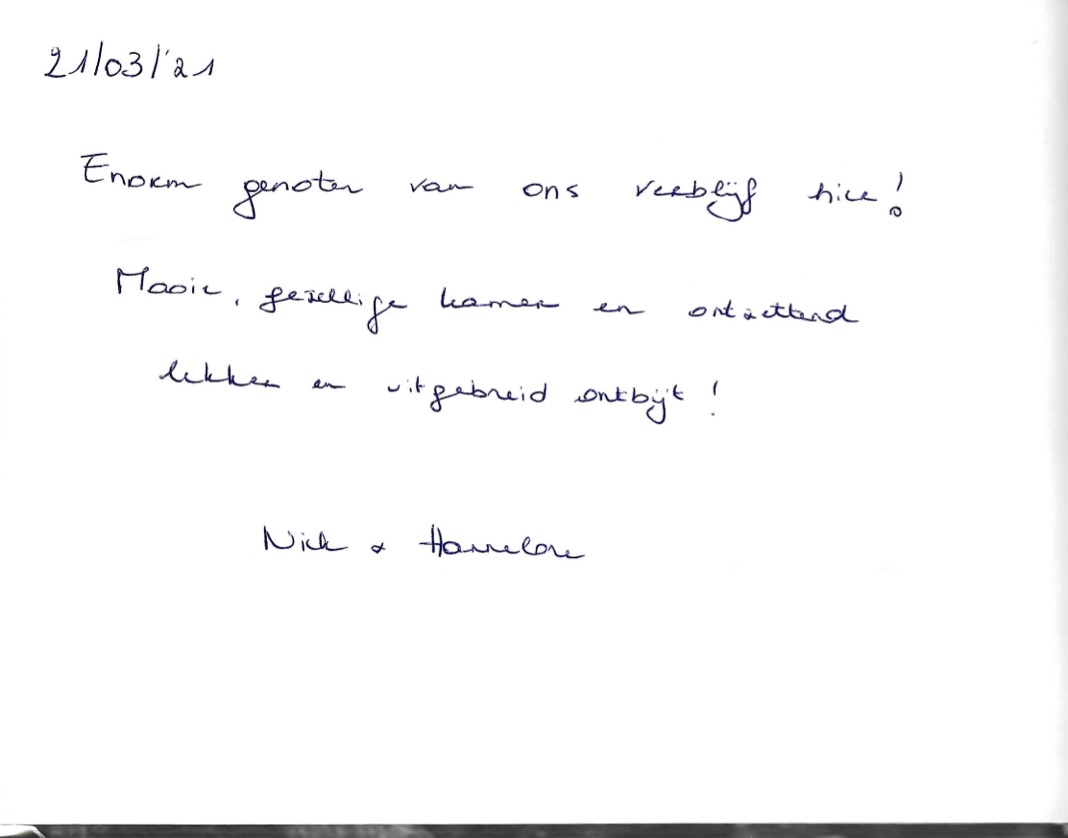 21/03/'21
Enorm genoten van ons verblijf hier!
Mooie, gezellige kamer en ontzettend
lekker en uitgebreid ontbijt!
Nick & Hannelore